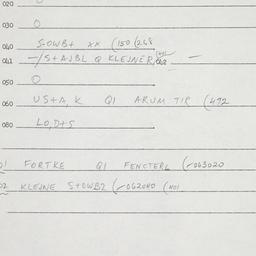 020
030 O
040 S+OWB+ xx (150 (268
041 -/S+AJBL Q KLEJNER,
050 O
060 US+A, K Q1 ARUM TIR (472
080 LO,D+S
01 FORTRE Q1 FENCTERL (-063020
02 KLEJNE S+OWB2 (-062040 (401